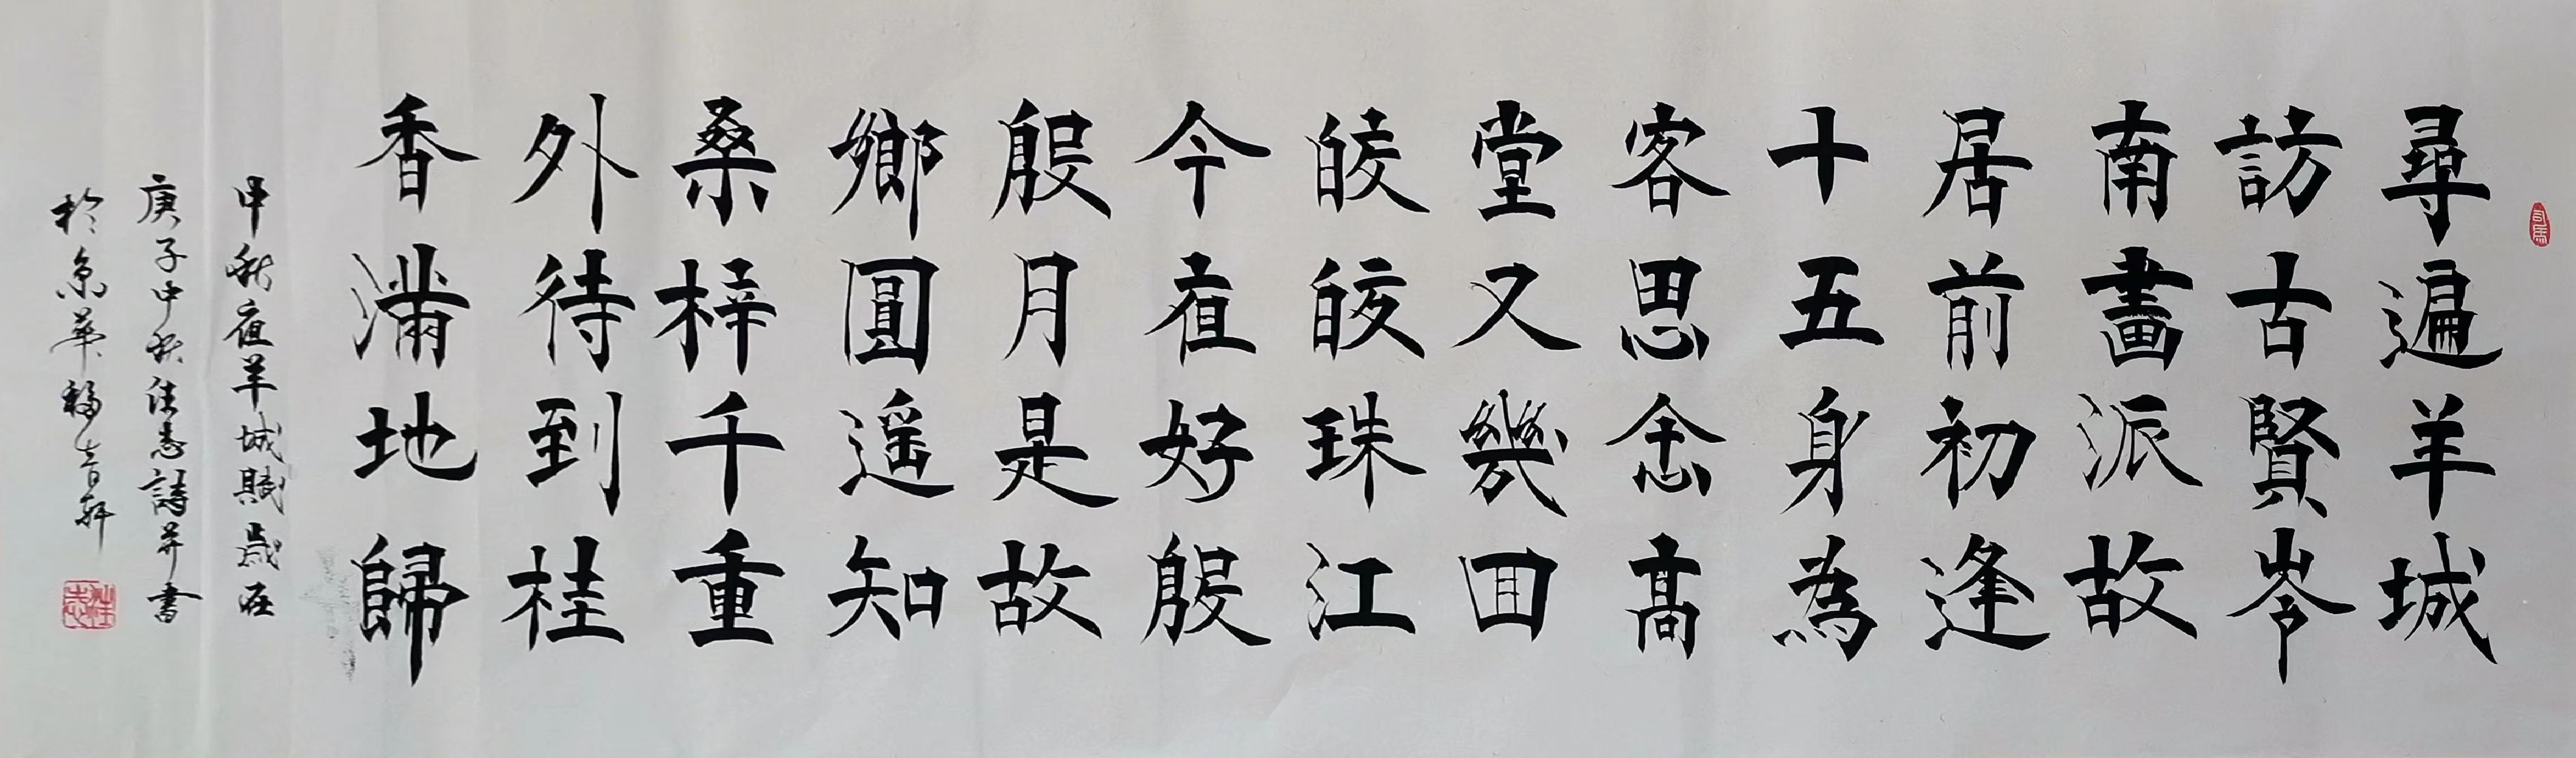 尋遍羊城
訪古賢岑
南畫派故
居前初逢
十五身為
客思念高
堂又幾回
皎皎珠江
今夜好殷
殷月是故
鄉圓遥知
桑梓千重
外待到桂
香滿地歸
中秋夜羊城賦歲在
庚子中秋汪志詩并書
於京華福音軒
汪志